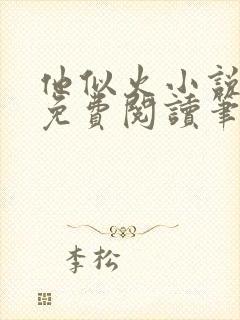 他似火小說
免費閱讀筆
李松